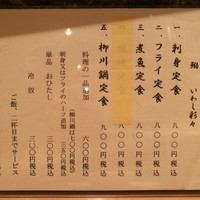 鰯 いわし彩々
一、刺身定食 八〇〇円税込
二、フライ定食 八〇〇円税込
三、煮魚定食 八〇〇円税込
定食 八〇〇円税込
五、柳川鍋定食 九〇〇円税込
料理の一品追加 六〇〇円税込
(柳川鍋は七〇〇円税込)
刺身又はフライのハーフ追加 三五〇円税込
単品 おひたし 三〇〇円税込
冷奴 三〇〇円税込
ご飯、二杯目までサービス